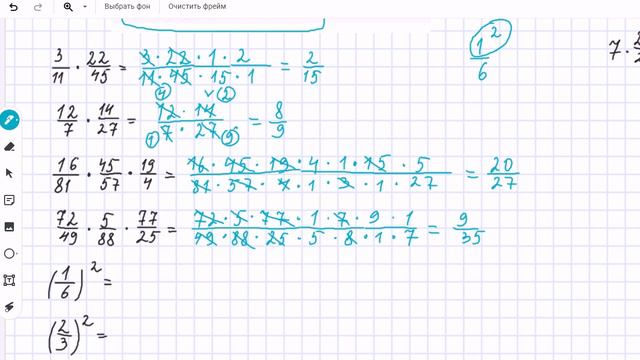 Выбрать фон Очистить фрейм
3/11 · 22/45 = 3 · 22 · 1 · 2 / 11 · 45 · 15 · 1 = 2/15
1²/6
7 ·
12/7 · 14/27 = 12 · 14 / 7 · 27 = 8/9
④ ②
① ⑨
16/81 · 45/57 · 19/4 = 16 · 45 · 19 · 4 · 1 · 15 · 5 / 81 · 57 · 4 · 1 · 3 · 1 · 27 = 20/27
72/49 · 5/88 · 77/25 = 72 · 5 · 77 · 1 · 7 · 9 · 1 / 49 · 88 · 25 · 5 · 8 · 1 · 7 = 9/35
(1/6)² =
(2/3)² =